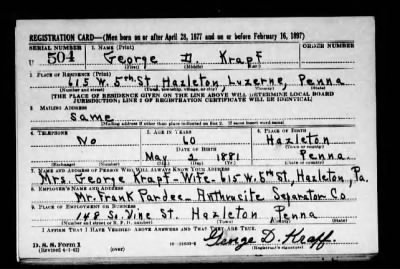 REGISTRATION CARD—(Men born on or after April 28, 1877 and on or before February 16, 1897)
SERIAL NUMBER 1. NAME (Print) ORDER NUMBER
U 504 George D. Krapf
(First) (Middle) (Last)
2. PLACE OF RESIDENCE (Print)
615 W. 5th St. Hazleton, Luzerne, Penna
(Number and street) (Town, township, village, or city) (County) (State)
[THE PLACE OF RESIDENCE GIVEN ON THE LINE ABOVE WILL DETERMINE LOCAL BOARD
JURISDICTION; LINE 2 OF REGISTRATION CERTIFICATE WILL BE IDENTICAL]
3. MAILING ADDRESS
Same
[Mailing address if other than place indicated on line 2. If same insert word same]
4. TELEPHONE 5. AGE IN YEARS 6. PLACE OF BIRTH
No 60 Hazleton
DATE OF BIRTH (Town or county)
May 2 1881 Penna.
(Exchange) (Number) (Mo.) (Day) (Yr.) (State or country)
7. NAME AND ADDRESS OF PERSON WHO WILL ALWAYS KNOW YOUR ADDRESS
Mrs. George Krapf-Wife-615 W. 5th St, Hazleton, Pa.
8. EMPLOYER'S NAME AND ADDRESS
Mr. Frank Pardee-Anthrasite Separator Co
9. PLACE OF EMPLOYMENT OR BUSINESS
148 So. Vine St. Hazleton Penna
(Number and street or R. F. D. number) (Town) (County) (State)
I AFFIRM THAT I HAVE VERIFIED ABOVE ANSWERS AND THAT THEY ARE TRUE.
George D. Krapf
D. S. S. Form 1
(Revised 4-1-42) (over) (Registrant's signature)